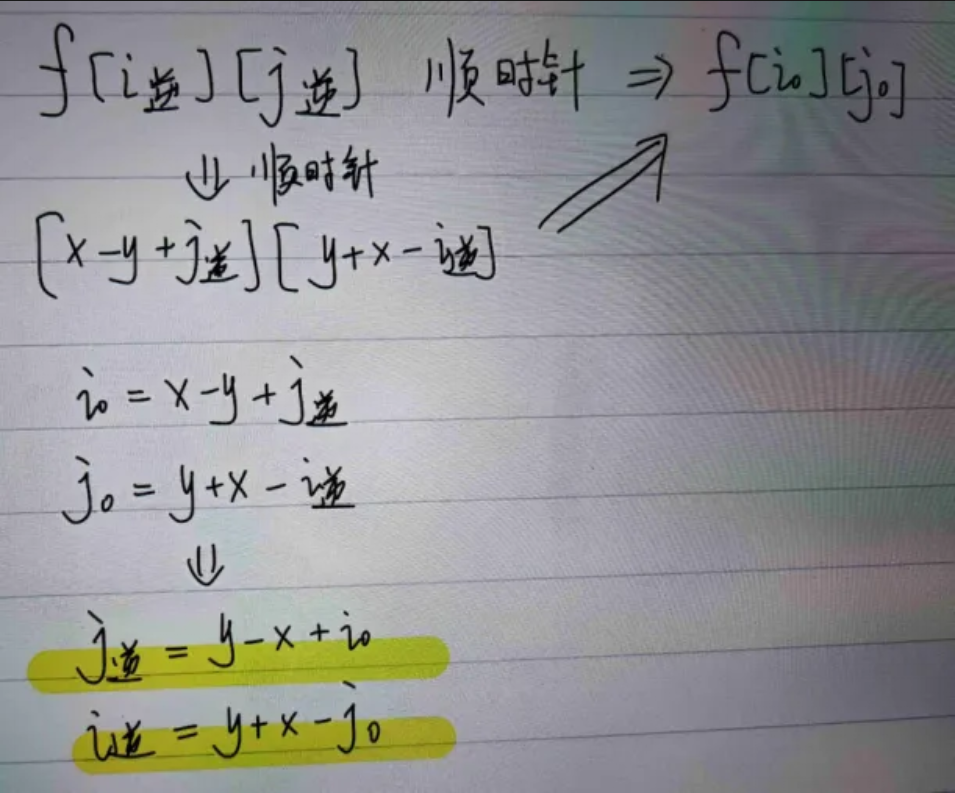 f[i逆][j逆] 顺时针 ⇒ f[i₀][j₀]
⇓ 顺时针
[x-y+j逆][y+x-i逆]
i₀ = x-y+j逆
j₀ = y+x-i逆
⇓
j逆 = y-x+i₀
i逆 = y+x-j₀